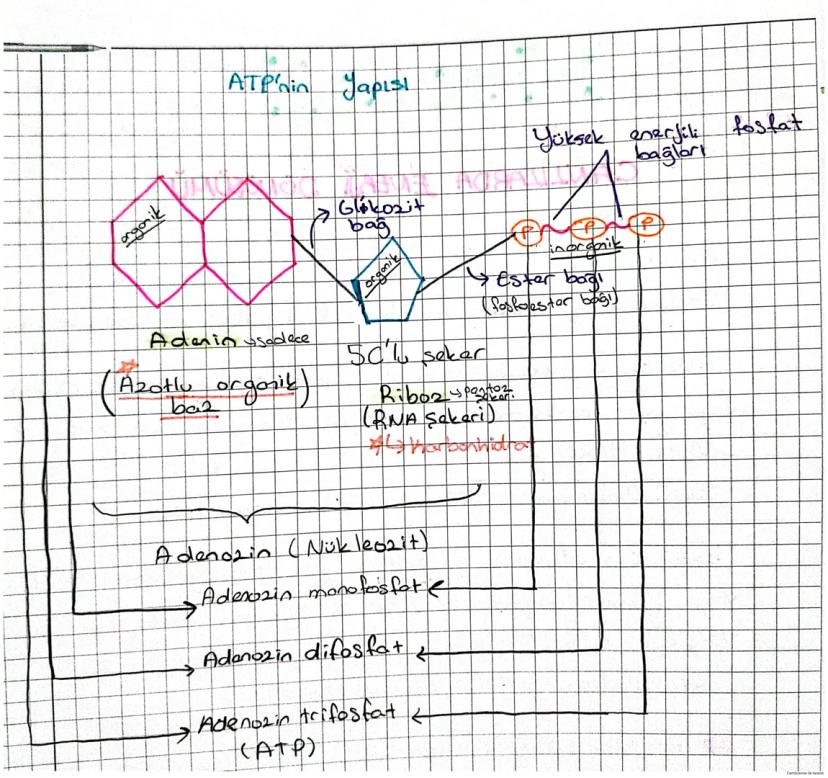 ATP'nin Yapısı
Yüksek enerjili fosfat
bağları
CANLILARDA ENERJİ DÖNÜŞÜMÜ
Glikozit
bağ
organik
organik
P P P
inorganik
Ester bağı
(fosfoester bağı)
Adenin → sadece
(Azotlu organik
baz)
5C'lu şeker
Riboz → pentoz
şekeri
(RNA Şekeri)
Karbonhidrat
Adenozin (Nükleozit)
Adenozin monofosfat
Adenozin difosfat
Adenozin trifosfat
(ATP)
CamScanner ile tarandı